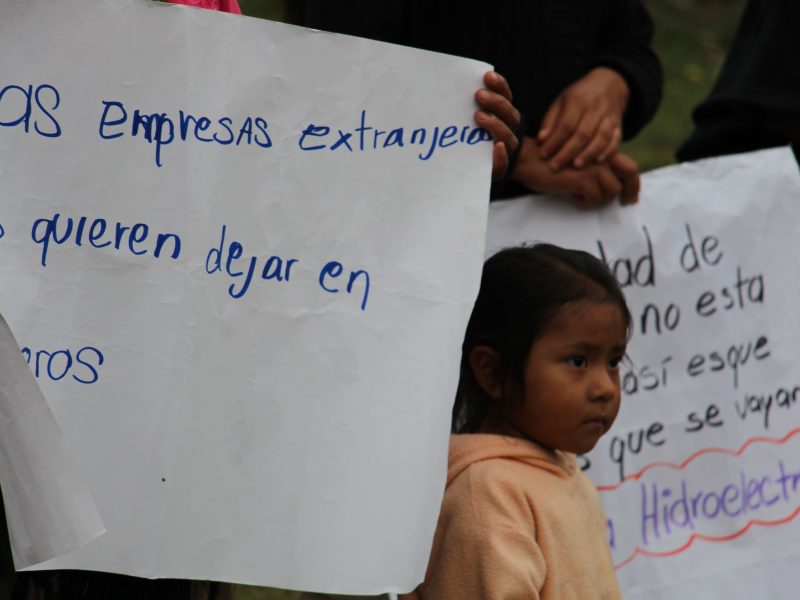 as empresas extranjera
quieren dejar en
eros
dad de
no esta
así esque
que se vayan
Hidroelectr